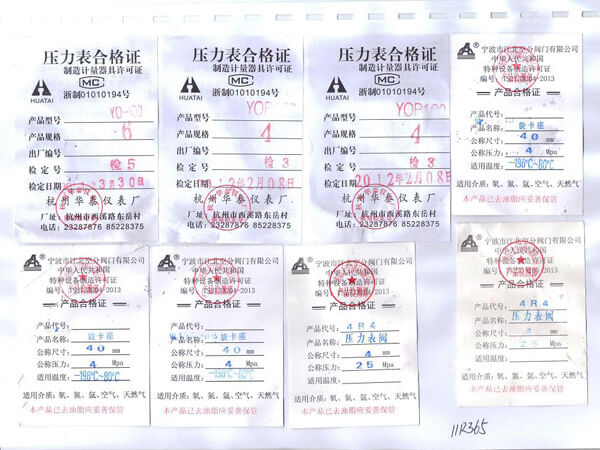 压力表合格证
制造计量器具许可证
MC
HUATAI
浙制01010194号
产品型号 YO-100
产品规格 6
出厂编号
检定号 检5
检定日期 3月30日
杭州华泰仪表厂
厂址:杭州市西溪路东岳村
电话:23287876 85228375
压力表合格证
制造计量器具许可证
MC
HUATAI
浙制01010194号
产品型号
产品规格 4
出厂编号
检定号 检3
检定日期 12年2月08日
杭州华泰仪表厂
厂址:杭州市西溪路东岳村
电话:23287876 85228375
压力表合格证
制造计量器具许可证
MC
HUATAI
浙制01010194号
产品型号 YOP100
产品规格 4
出厂编号
检定号 检3
检定日期 2012年2月08日
杭州华泰仪表厂
厂址:杭州市西溪路东岳村
电话:23287876 85228375
宁波市江北空分阀门有限公司
中华人民共和国
特种设备制造许可证
编号: -2013
产品合格证
产品代号:
产品名称: 旋卡座
公称尺寸: 40 mm
公称压力: 4 Mpa
适用温度: -196℃~80℃
适用介质:氧、氮、氩、空气、天然气
本产品已去油脂应妥善保管
宁波市江北空分阀门有限公司
中华人民共和国
特种设备制造许可证
编号: -2013
产品合格证
产品代号:
产品名称: 旋卡座
公称尺寸: 40 mm
公称压力: 4 Mpa
适用温度: -196℃~80℃
适用介质:氧、氮、氩、空气、天然气
本产品已去油脂应妥善保管
宁波市江北空分阀门有限公司
中华人民共和国
特种设备制造许可证
编号: -2013
产品合格证
产品代号:
产品名称: 旋卡座
公称尺寸: 40 mm
公称压力: 4 Mpa
适用温度: -196℃~80℃
适用介质:氧、氮、氩、空气、天然气
本产品已去油脂应妥善保管
宁波市江北空分阀门有限公司
中华人民共和国
特种设备制造许可证
编号: -2013
产品合格证
产品代号: 4R4
产品名称: 压力表阀
公称尺寸: 4 mm
公称压力: 25 Mpa
适用温度:
适用介质:氧、氮、氩、空气、天然气
本产品已去油脂应妥善保管
宁波市江北空分阀门有限公司
中华人民共和国
特种设备制造许可证
编号: -2013
产品合格证
产品代号: 4R4
产品名称: 压力表阀
公称尺寸: 4 mm
公称压力: 25 Mpa
适用温度:
适用介质:氧、氮、氩、空气、天然气
本产品已去油脂应妥善保管
11R365